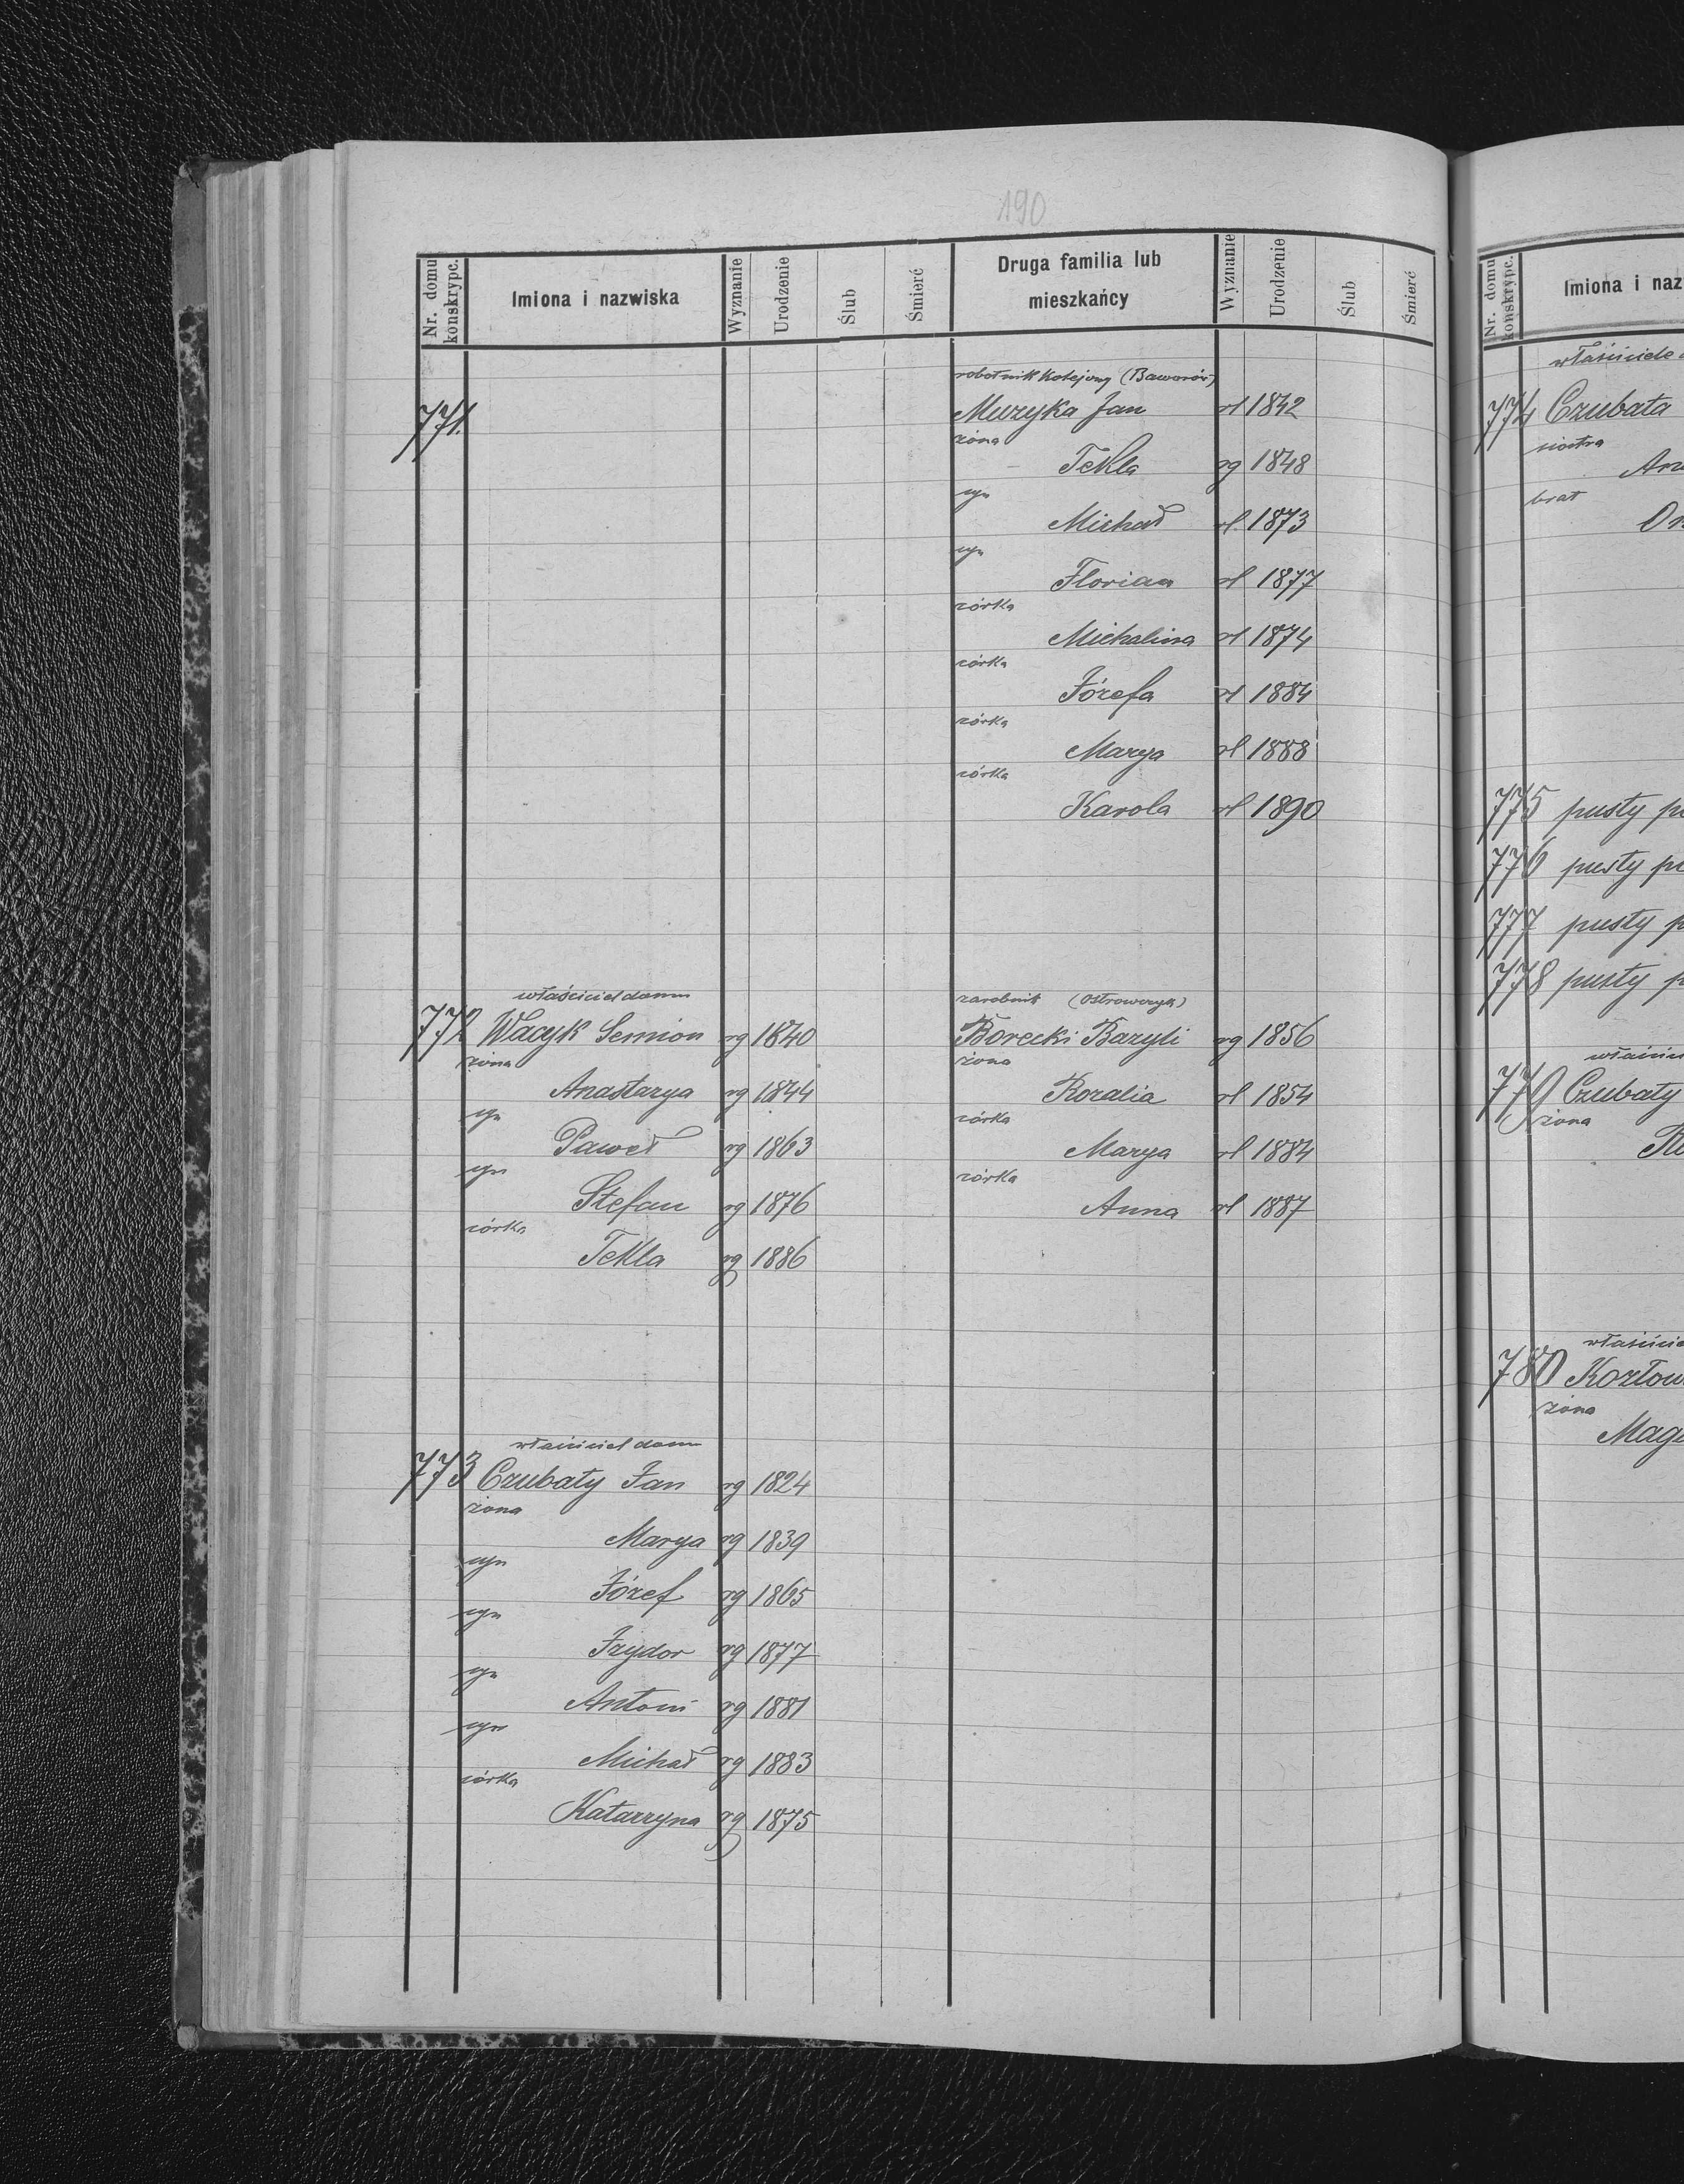 190
Nr. domu konskrypc.
Imiona i nazwiska
Wyznanie
Urodzenie
Ślub
Śmierć
Druga familia lub mieszkańcy
Wyznanie
Urodzenie
Ślub
Śmierć
771.
robotnik kolejowy (Baworów)
Muzyka Jan rl 1842
żona
Tekla rg 1848
syn
Michał rl. 1873
syn
Florian rl 1877
córka
Michalina rl 1874
córka
Józefa rl 1884
córka
Marya rl 1888
córka
Karola rl 1890
właściciel domu
772 Wacyk Semion rg 1840
żona
Anastazya rg 1844
syn
Paweł rg 1863
syn
Stefan rg 1876
córka
Tekla rg 1886
zarobnik (Ostrowczyk)
Borecki Bazyli rg 1856
żona
Rozalia rl 1854
córka
Marya rl 1884
córka
Anna rl 1887
właściciel domu
773 Czubaty Jan rg 1824
żona
Marya rg 1839
syn
Józef rg 1865
syn
Izydor rg 1877
syn
Antoni rg 1881
syn
Michał rg 1883
córka
Katarzyna rg 1875
Nr. domu konskrypc.
Imiona i naz
właściciele
774 Czubata
siostra
brat
775 pusty
776 pusty
777 pusty
778 pusty
779 Czubaty
żona
780
żona